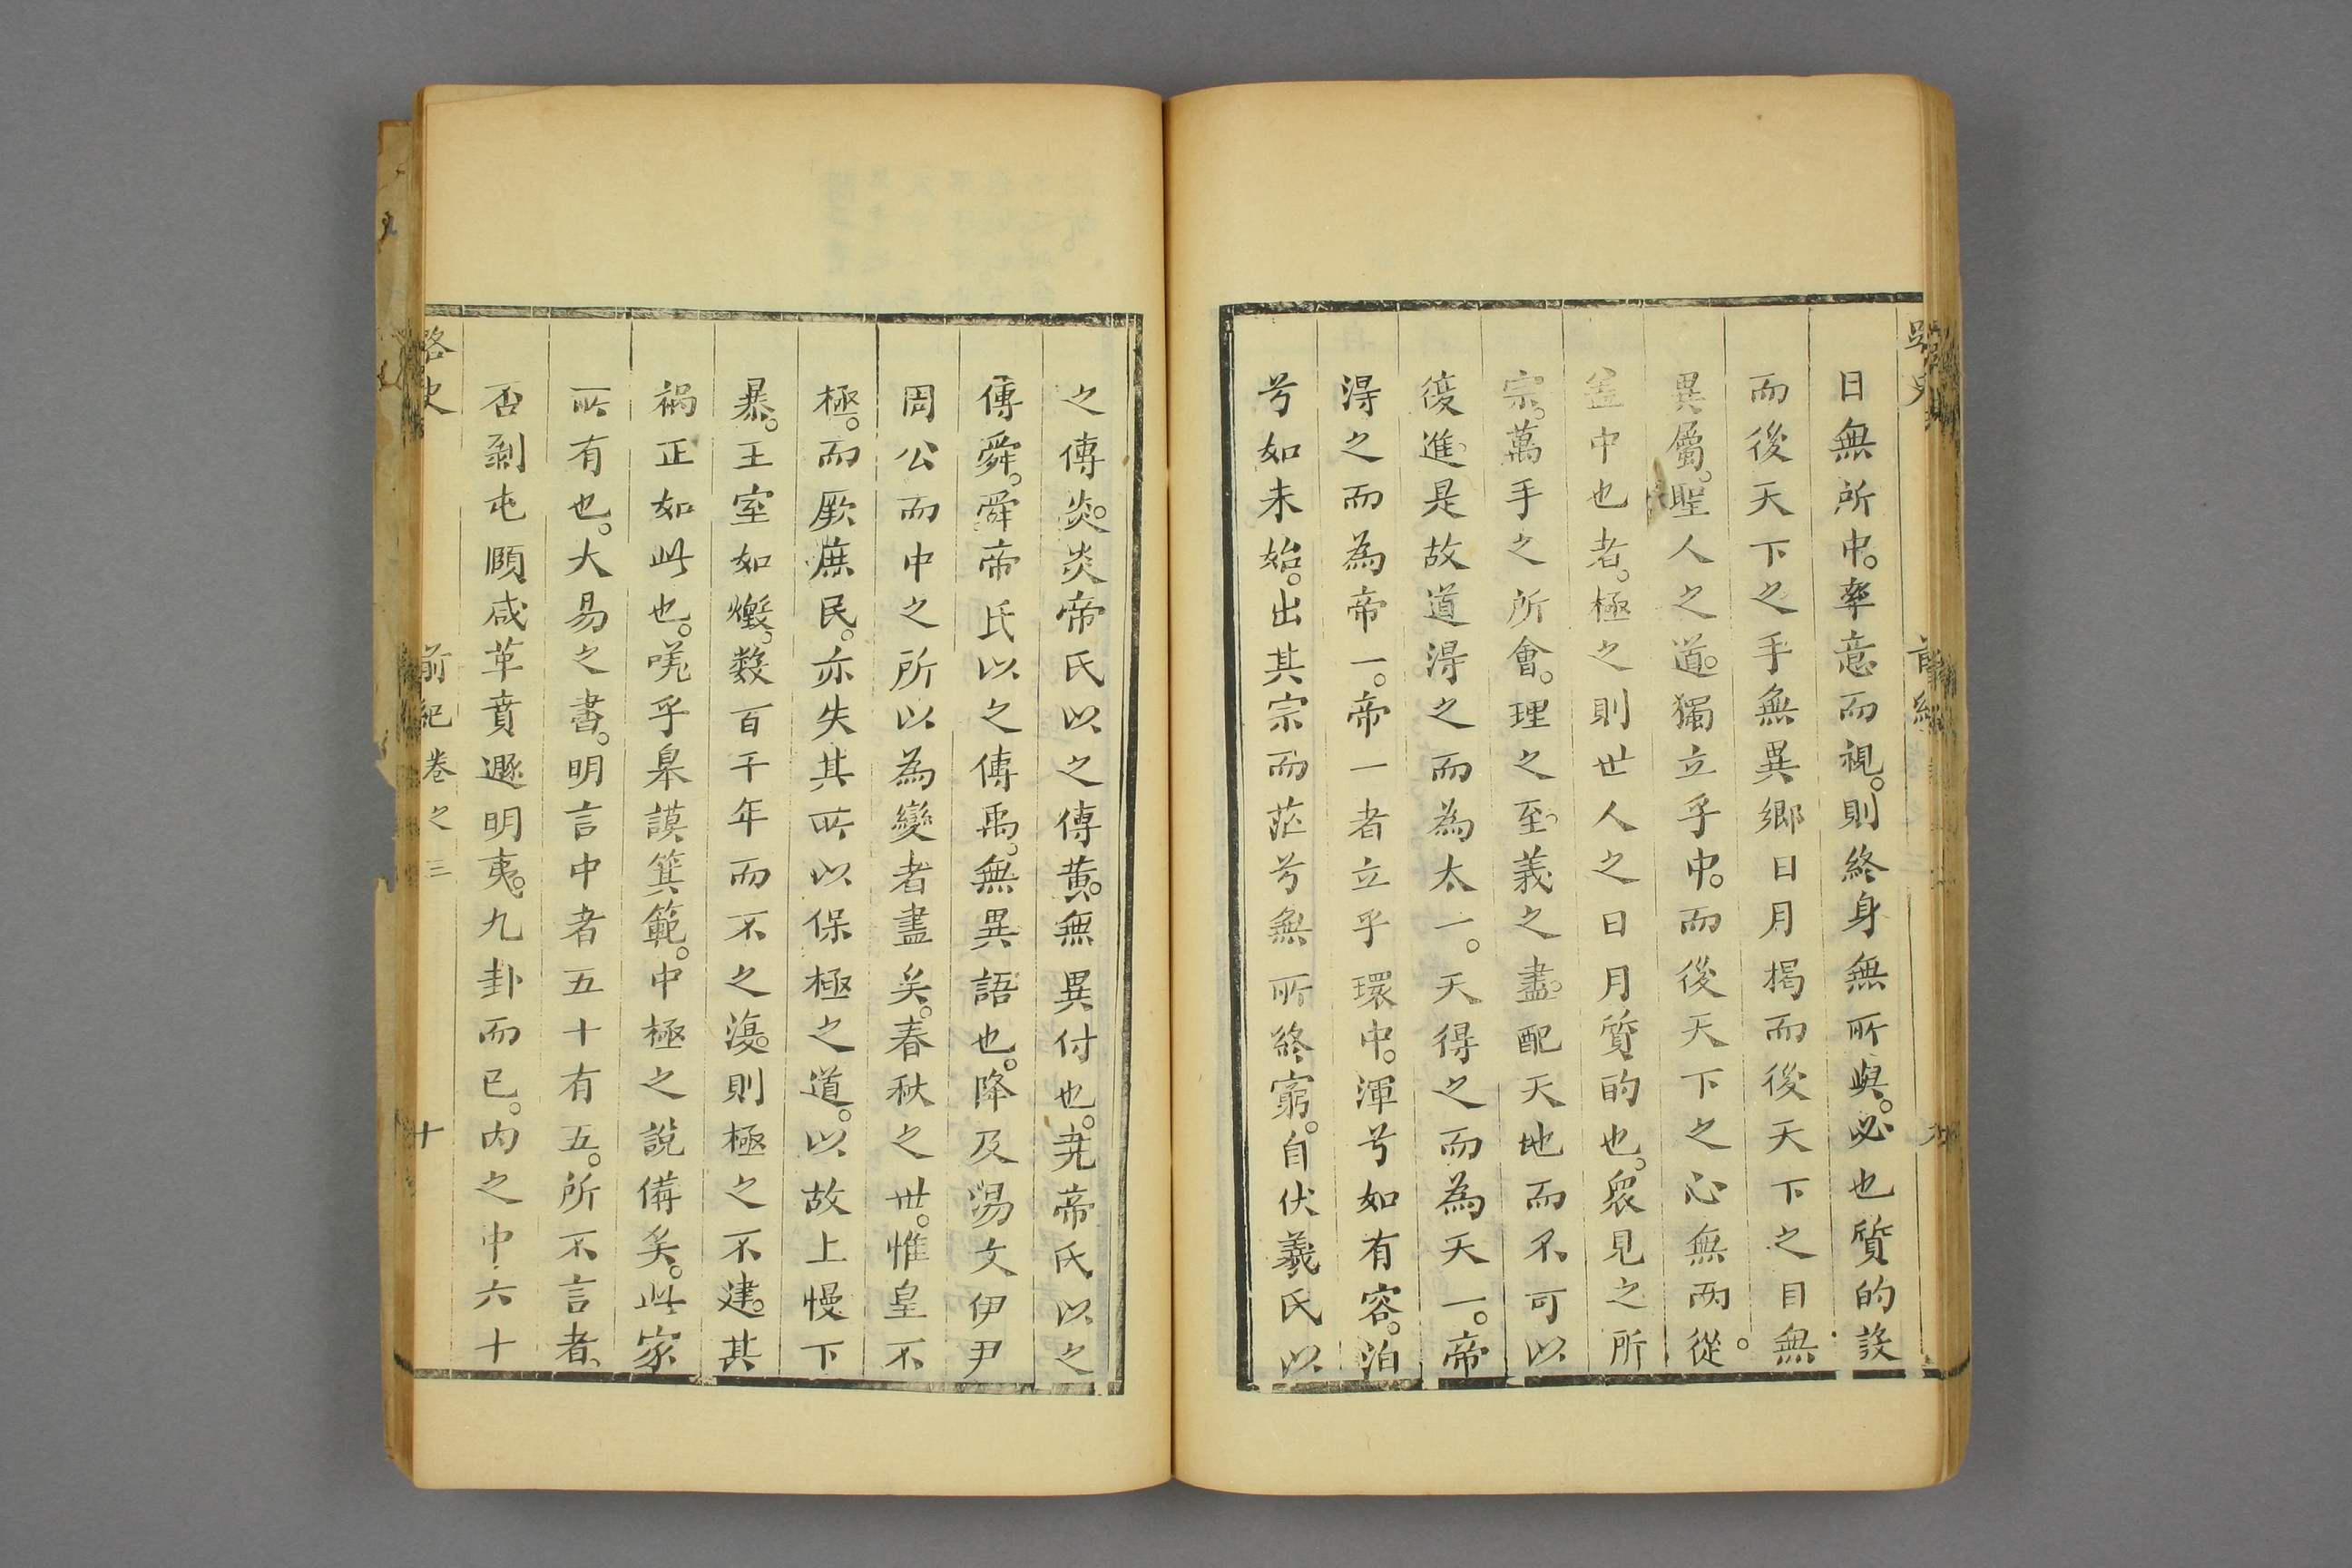 日無所中。率意而視。則終身無所與。必也質的設
而後天下之手無異鄉日月揭而後天下之目無
異屬。聖人之道。獨立乎中。而後天下之心無兩從。
蓋中也者。極之則世人之日月質的也。眾見之所
宗。萬手之所會。理之至。義之盡。配天地而不可以
復進。是故道得之而為太一。天得之而為天一。帝
得之而為帝一。帝一者立乎環中。渾兮如有容。泊
兮如未始。出其宗而茫兮無所終窮。自伏羲氏以
之傳炎。炎帝氏以之傳黃。無異付也。堯帝氏以之
傳舜。舜帝氏以之傳禹。無異語也。降及湯文伊尹
周公而中之所以為變者盡矣。春秋之世。惟皇不
極。而厥庶民。亦失其所以保極之道。以故上慢下
暴。王室如燬。數百千年而不之復。則極之不建。其
禍正如此也。嗟乎皋謨箕範。中極之說備矣。此家
所有也。大易之書。明言中者五十有五。所不言者、
否剝屯頤咸革賁遯明夷。九卦而已。內之中六十
路史 前紀卷之三 十